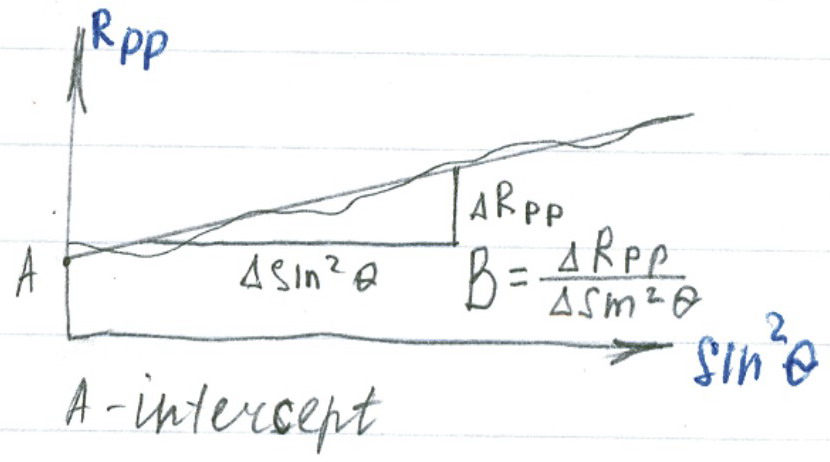 Rpp
ΔRpp
A
Δsin²θ
B = ΔRpp / Δsin²θ
sin²θ
A - intercept